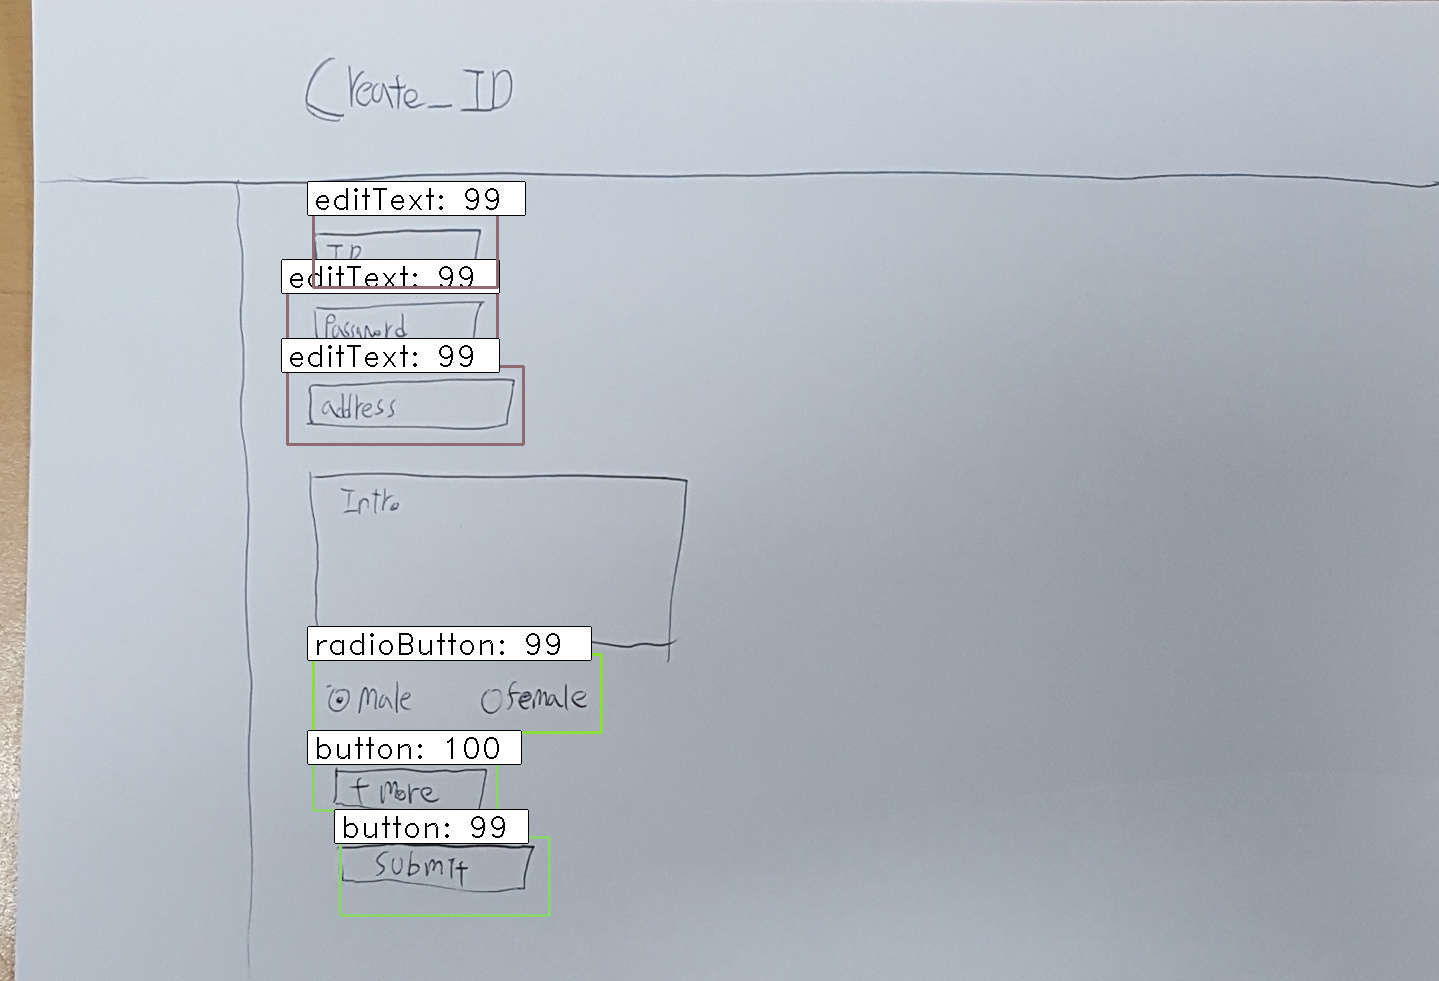 Create_ID
editText: 99
ID
editText: 99
Password
editText: 99
address
Intro
radioButton: 99
male female
button: 100
+ more
button: 99
Submit